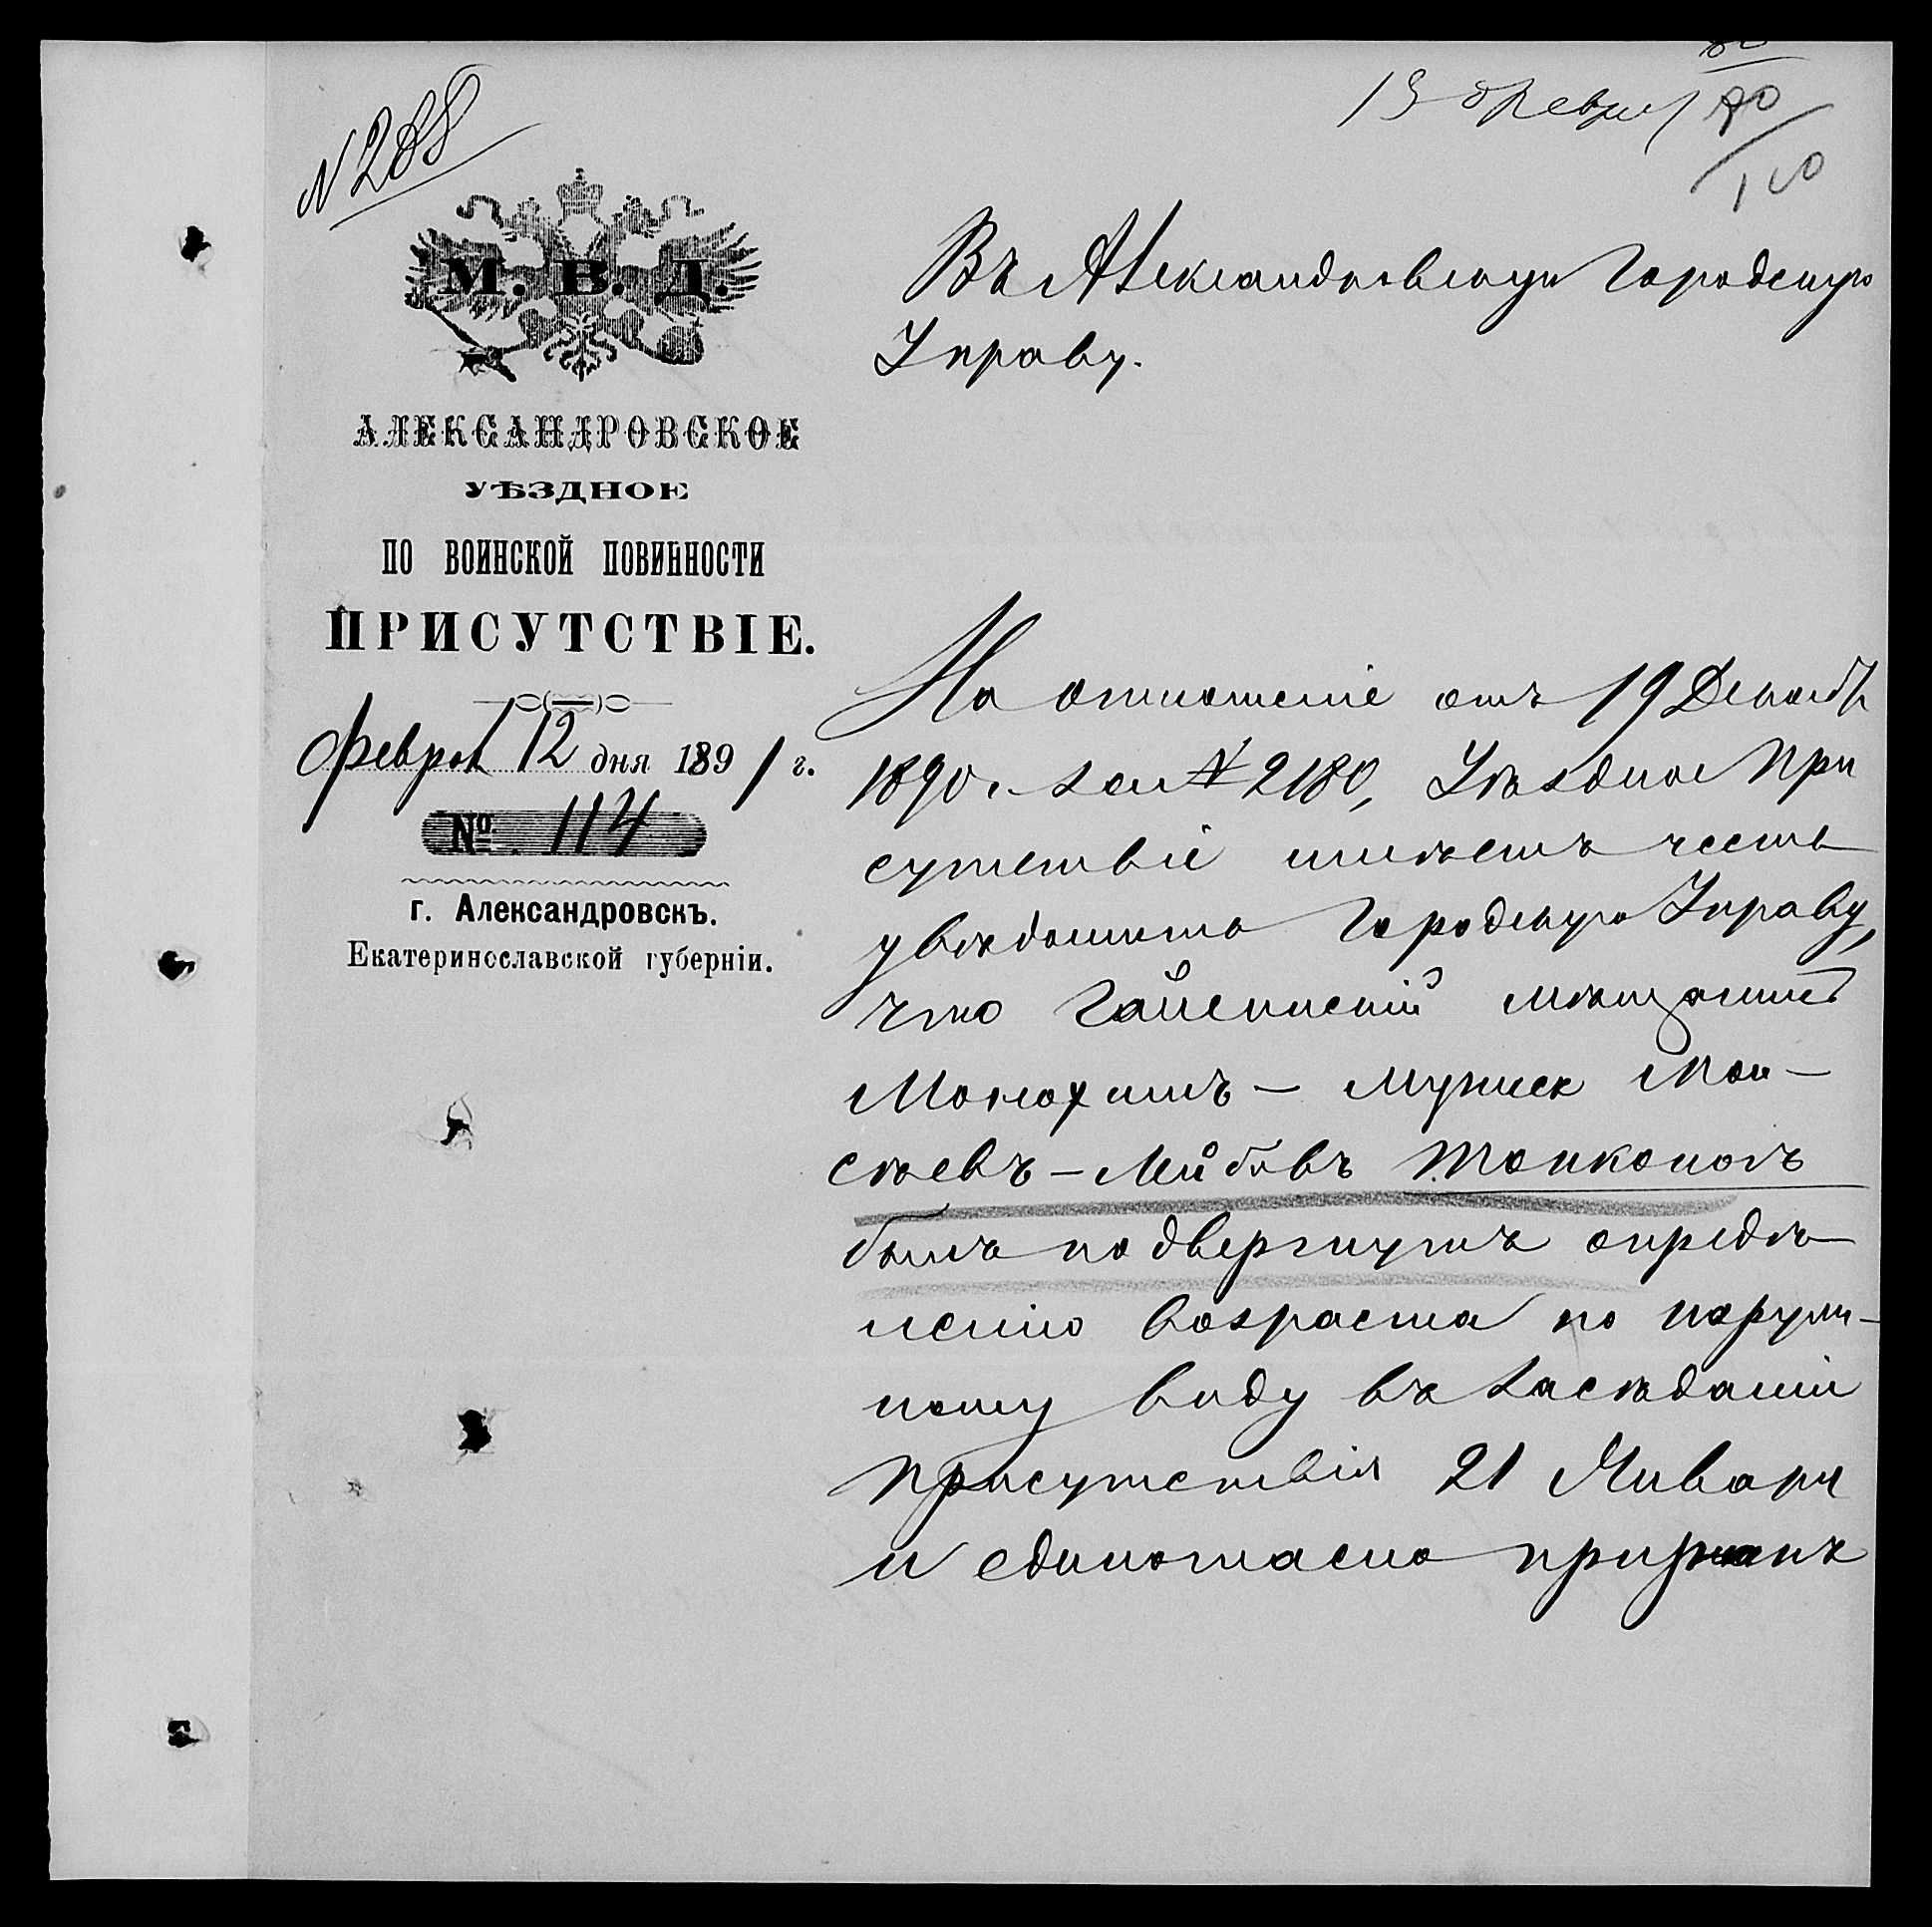 N 288
13 Феврал
М. В. Д.
АЛЕКСАНДРОВСКОЕ
УѢЗДНОЕ
ПО ВОИНСКОЙ ПОВИННОСТИ
ПРИСУТСТВІЕ.
Феврал 12 дня 1891 г.
№ 114
г. Александровскъ.
Екатеринославской губерніи.
Въ Александровскую Городскую
Управу.
На отношеніе отъ 19 Декабр
1890 г. за N 2180, Уѣздное При
сутствіе имѣетъ честь
увѣдомить Городскую Управу,
что мѣщанинъ
Монохимъ – Мунишек Мои –
сѣевъ – Лейбовъ Топкополъ
былъ подвергнутъ опредѣ
ленію возраста по наруж-
ному виду въ засѣданіи
Присутствія 21 Января
и единогласно признанъ